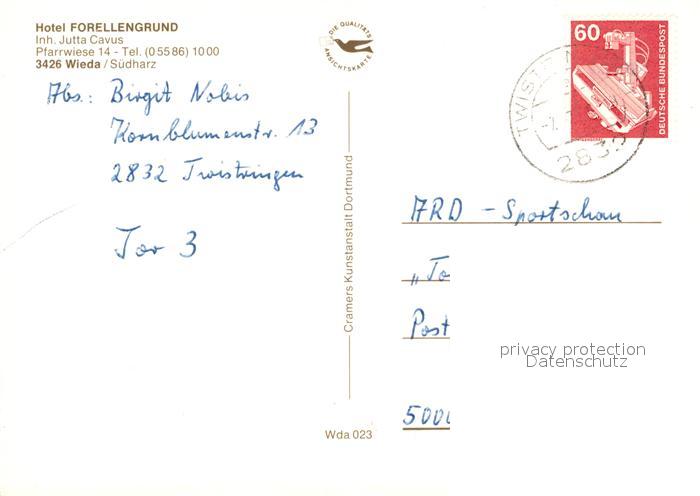 Hotel FORELLENGRUND
Inh. Jutta Cavus
Pfarrwiese 14 - Tel. (0 55 86) 10 00
3426 Wieda / Südharz
Abs.: Birgit Nobis
Kornblumenstr. 13
2832 Twistringen
Tor 3
DIE QUALITÄTS
ANSICHTSKARTE
Cramers Kunstanstalt Dortmund
Wda 023
60
DEUTSCHE BUNDESPOST
2832
ARD - Sportschau
„To
Post
5000
privacy protection
Datenschutz